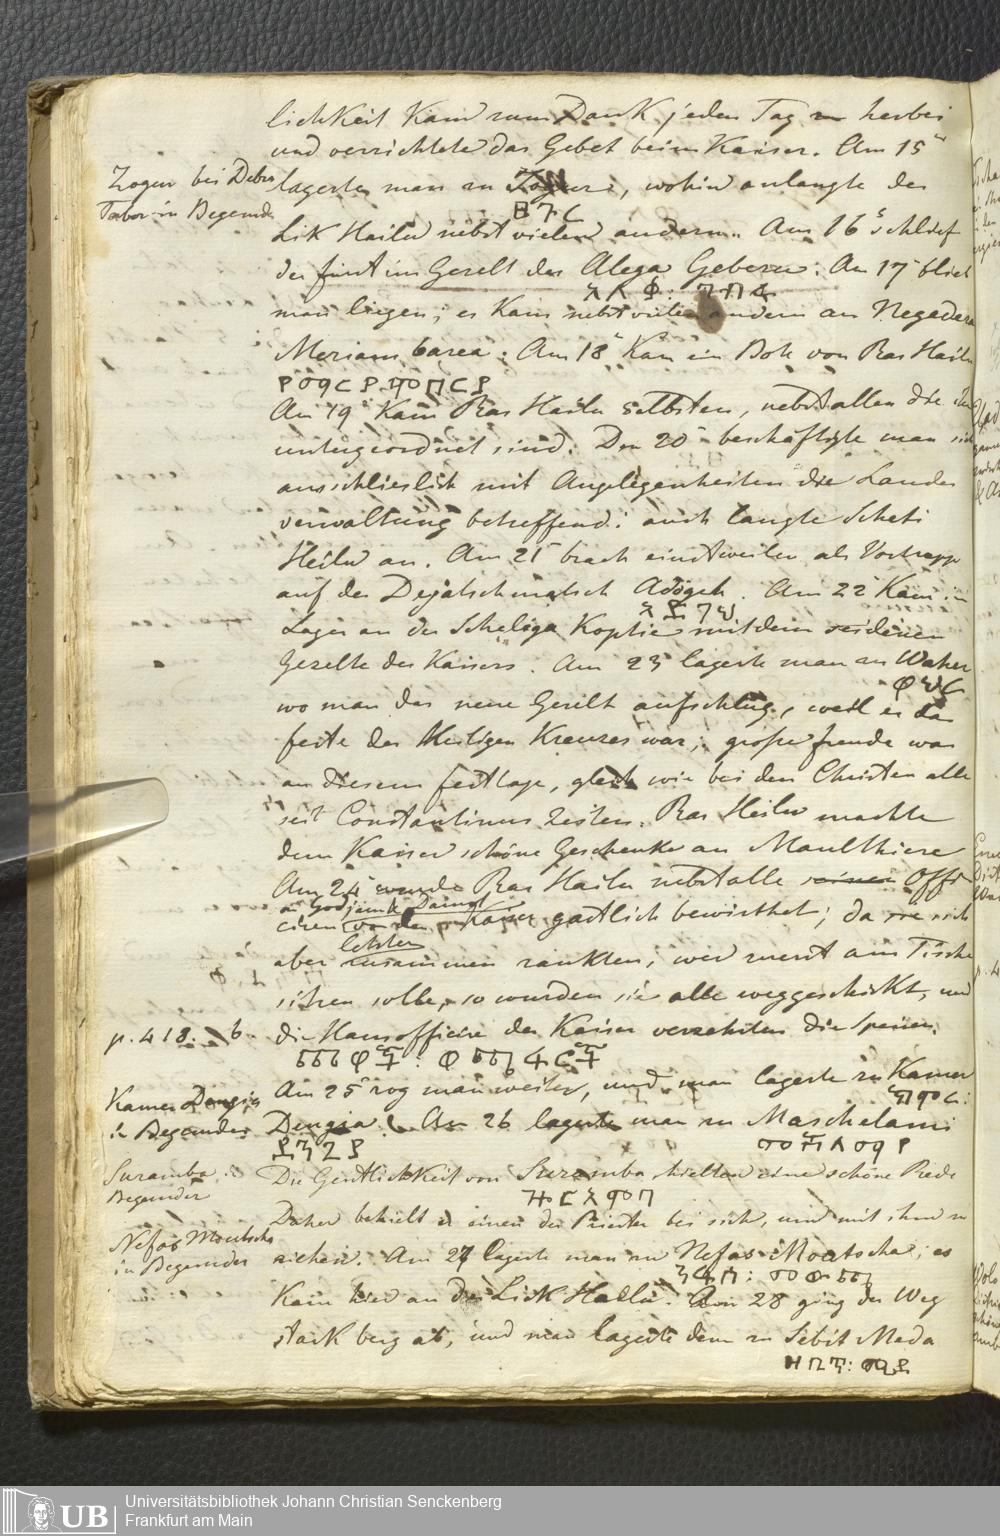 lichkeit kam zum Dank jeden Tag herbei
und verrichtete das Gebet beim Kaiser. Am 15n
Zogur bei Debra
Tabor in Begemder
lagerte man zu Zoguri, wohin anlangte der
Lik Hailu nebst vielen andern. Am 16n schlief
der fürst im Gezelt des Alega Geberu. Am 17n blieb
አለቃ: ገብሩ
man liegen; es kam nebst vielen andern an Negedera
Meriam barea. Am 18n kam ein Bote von Ras Hailu
Am 19n kam Ras Hailu selbsten, nebst allen die ihm
untergeordnet sind. Den 20n beschäftigte man sich
ausschlieslich mit Angelegenheiten die Landes
verwaltung betreffend: auch langte Schefi
Heilu an. Am 21n brach einstweilen als Vortrapp
auf der Dejatschmatsch Adögeh. Am 22n kam im
Lager an der Scheliga Koptie mit dem seidenen
Gezelte des Kaisers. Am 23n lagerte man zu Waher
wo man das neue Gezelt aufschlug, weil es das
feste des Heiligen Kreuzes war; große freude war
an diesem festtage, gleich wie bei den Christen alle
seit Constantinus Zeiten. Ras Heilu machte
dem Kaiser schöne Geschenke an Maulthiere
Am 24n wurde Ras Hailu nebst alle seinen Offi
ciren von dem Kaiser gastlich bewirthet; da sie sich
letzten
aber zusammen zankten, wer zuerst am Tische
sitzen solle, so wurden sie alle weggeschickt, und
p. 418. b.
die Hausofficire des Kaiser verzehrten die Speisen.
Am 25n zog man weiter, und man lagerte zu Kamer
ቀመር:
Kamer Dengia
in Begemder
Dengia. Am 26 lagerte man zu Maschelami
ደንጊያ
Suramba
Begemder
Die Geistlichkeit von Suramba hielten eine schöne Rede
Daher behielt er einen der Priester bei sich, und mit ihm zu
Nefas Moutscha
in Begemder
ziehen. Am 27 lagerte man zu Nefas Moutscha; es
ነፋስ: መውጫ
kam hier an der Lick Hailu. Am 28 ging der Weg
stark berg ab, und man lagerte dem zu Sebit Meda
ዘቢጥ: ሜዳ
Universitätsbibliothek Johann Christian Senckenberg
Frankfurt am Main
UB